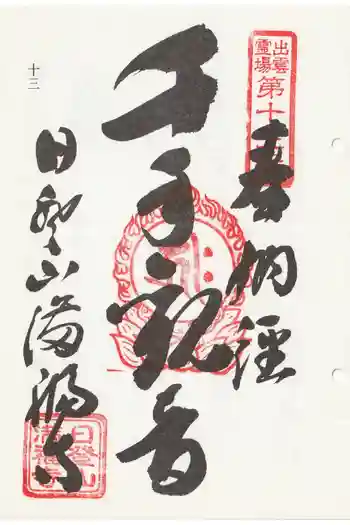 出雲
霊場
第十
奉納經
千手観音
日登山満福寺
十三
日登山
満福寺